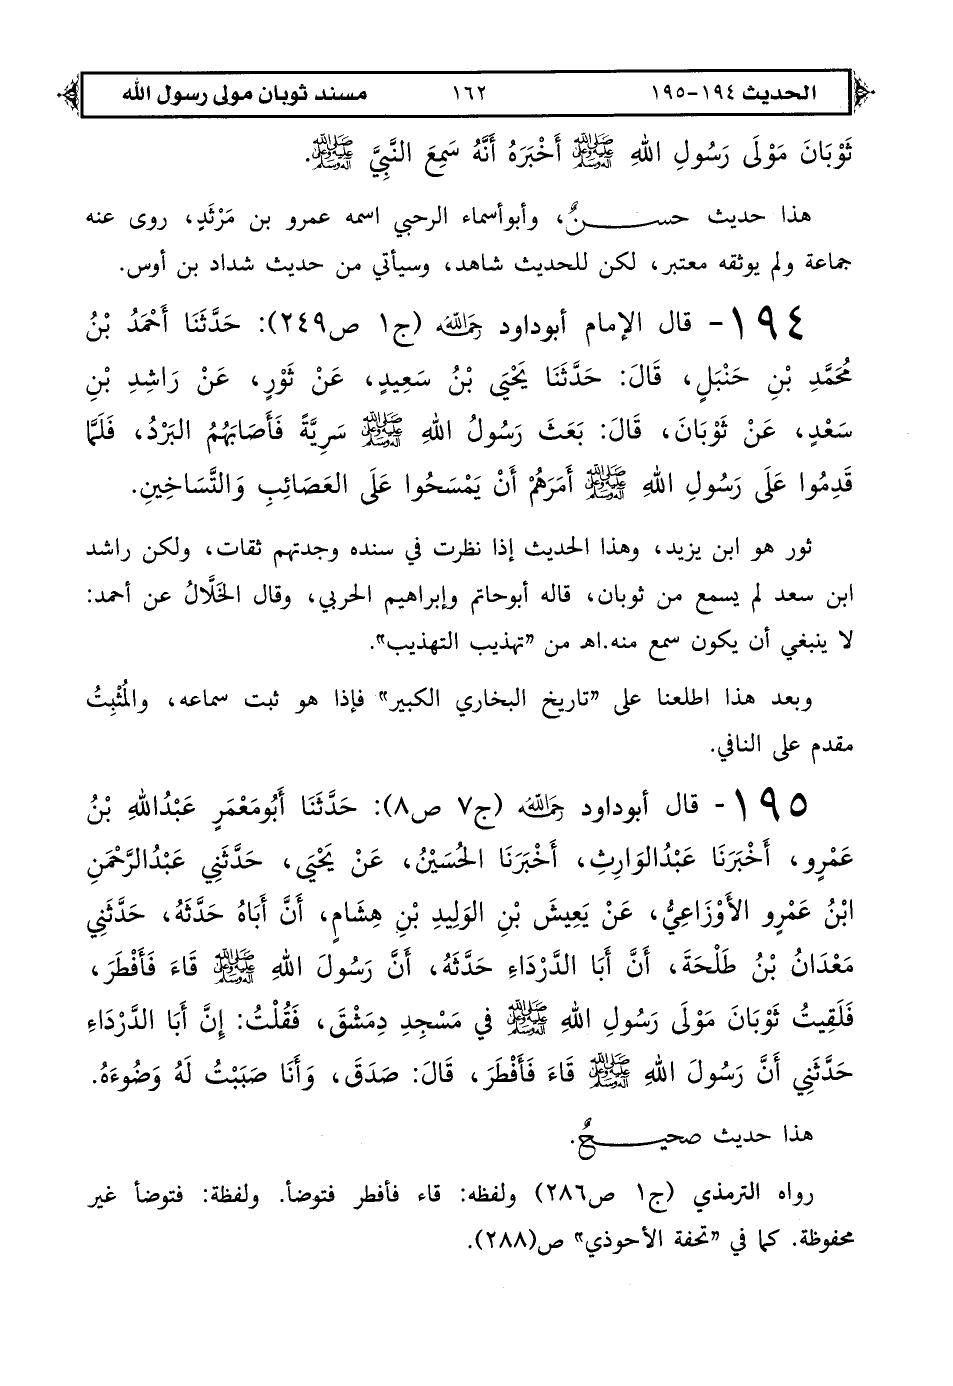 الحديث ١٩٤-١٩٥ ١٦٢ مسند ثوبان مولى رسول الله
ثَوْبَانَ مَوْلَى رَسُولِ اللهِ ﷺ أَخْبَرَهُ أَنَّهُ سَمِعَ النَّبِيَّ ﷺ.
هذا حديث حســـنٌ، وأبوأسماء الرحبي اسمه عمرو بن مَرْثَدٍ، روى عنه
جماعة ولم يوثقه معتبر، لكن للحديث شاهد، وسيأتي من حديث شداد بن أوس.
١٩٤- قال الإمام أبوداود رحمه الله (ج١ ص٢٤٩): حَدَّثَنَا أَحْمَدُ بْنُ
مُحَمَّدِ بْنِ حَنْبَلٍ، قَالَ: حَدَّثَنَا يَحْيَى بْنُ سَعِيدٍ، عَنْ ثَوْرٍ، عَنْ رَاشِدِ بْنِ
سَعْدٍ، عَنْ ثَوْبَانَ، قَالَ: بَعَثَ رَسُولُ اللهِ ﷺ سَرِيَّةً فَأَصَابَهُمُ البَرْدُ، فَلَمَّا
قَدِمُوا عَلَى رَسُولِ اللهِ ﷺ أَمَرَهُمْ أَنْ يَمْسَحُوا عَلَى العَصَائِبِ وَالتَّسَاخِينِ.
ثور هو ابن يزيد، وهذا الحديث إذا نظرت في سنده وجدتهم ثقات، ولكن راشد
ابن سعد لم يسمع من ثوبان، قاله أبوحاتم وإبراهيم الحربي، وقال الخَلَّالُ عن أحمد:
لا ينبغي أن يكون سمع منه.اهـ من "تهذيب التهذيب".
وبعد هذا اطلعنا على "تاريخ البخاري الكبير" فإذا هو ثبت سماعه، والمُثْبِتُ
مقدم على النافي.
١٩٥- قال أبوداود رحمه الله (ج٧ ص٨): حَدَّثَنَا أَبُومَعْمَرٍ عَبْدُاللهِ بْنُ
عَمْرٍو، أَخْبَرَنَا عَبْدُالوَارِثِ، أَخْبَرَنَا الحُسَيْنُ، عَنْ يَحْيَى، حَدَّثَنِي عَبْدُالرَّحْمَنِ
ابْنُ عَمْرٍو الأَوْزَاعِيُّ، عَنْ يَعِيشَ بْنِ الوَلِيدِ بْنِ هِشَامٍ، أَنَّ أَبَاهُ حَدَّثَهُ، حَدَّثَنِي
مَعْدَانُ بْنُ طَلْحَةَ، أَنَّ أَبَا الدَّرْدَاءِ حَدَّثَهُ، أَنَّ رَسُولَ اللهِ ﷺ قَاءَ فَأَفْطَرَ،
فَلَقِيتُ ثَوْبَانَ مَوْلَى رَسُولِ اللهِ ﷺ فِي مَسْجِدِ دِمَشْقَ، فَقُلْتُ: إِنَّ أَبَا الدَّرْدَاءِ
حَدَّثَنِي أَنَّ رَسُولَ اللهِ ﷺ قَاءَ فَأَفْطَرَ، قَالَ: صَدَقَ، وَأَنَا صَبَبْتُ لَهُ وَضُوءَهُ.
هذا حديث صحيـــحٌ.
رواه الترمذي (ج١ ص٢٨٦) ولفظه: قاء فأفطر فتوضأ. ولفظة: فتوضأ غير
محفوظة. كما في "تحفة الأحوذي" ص(٢٨٨).